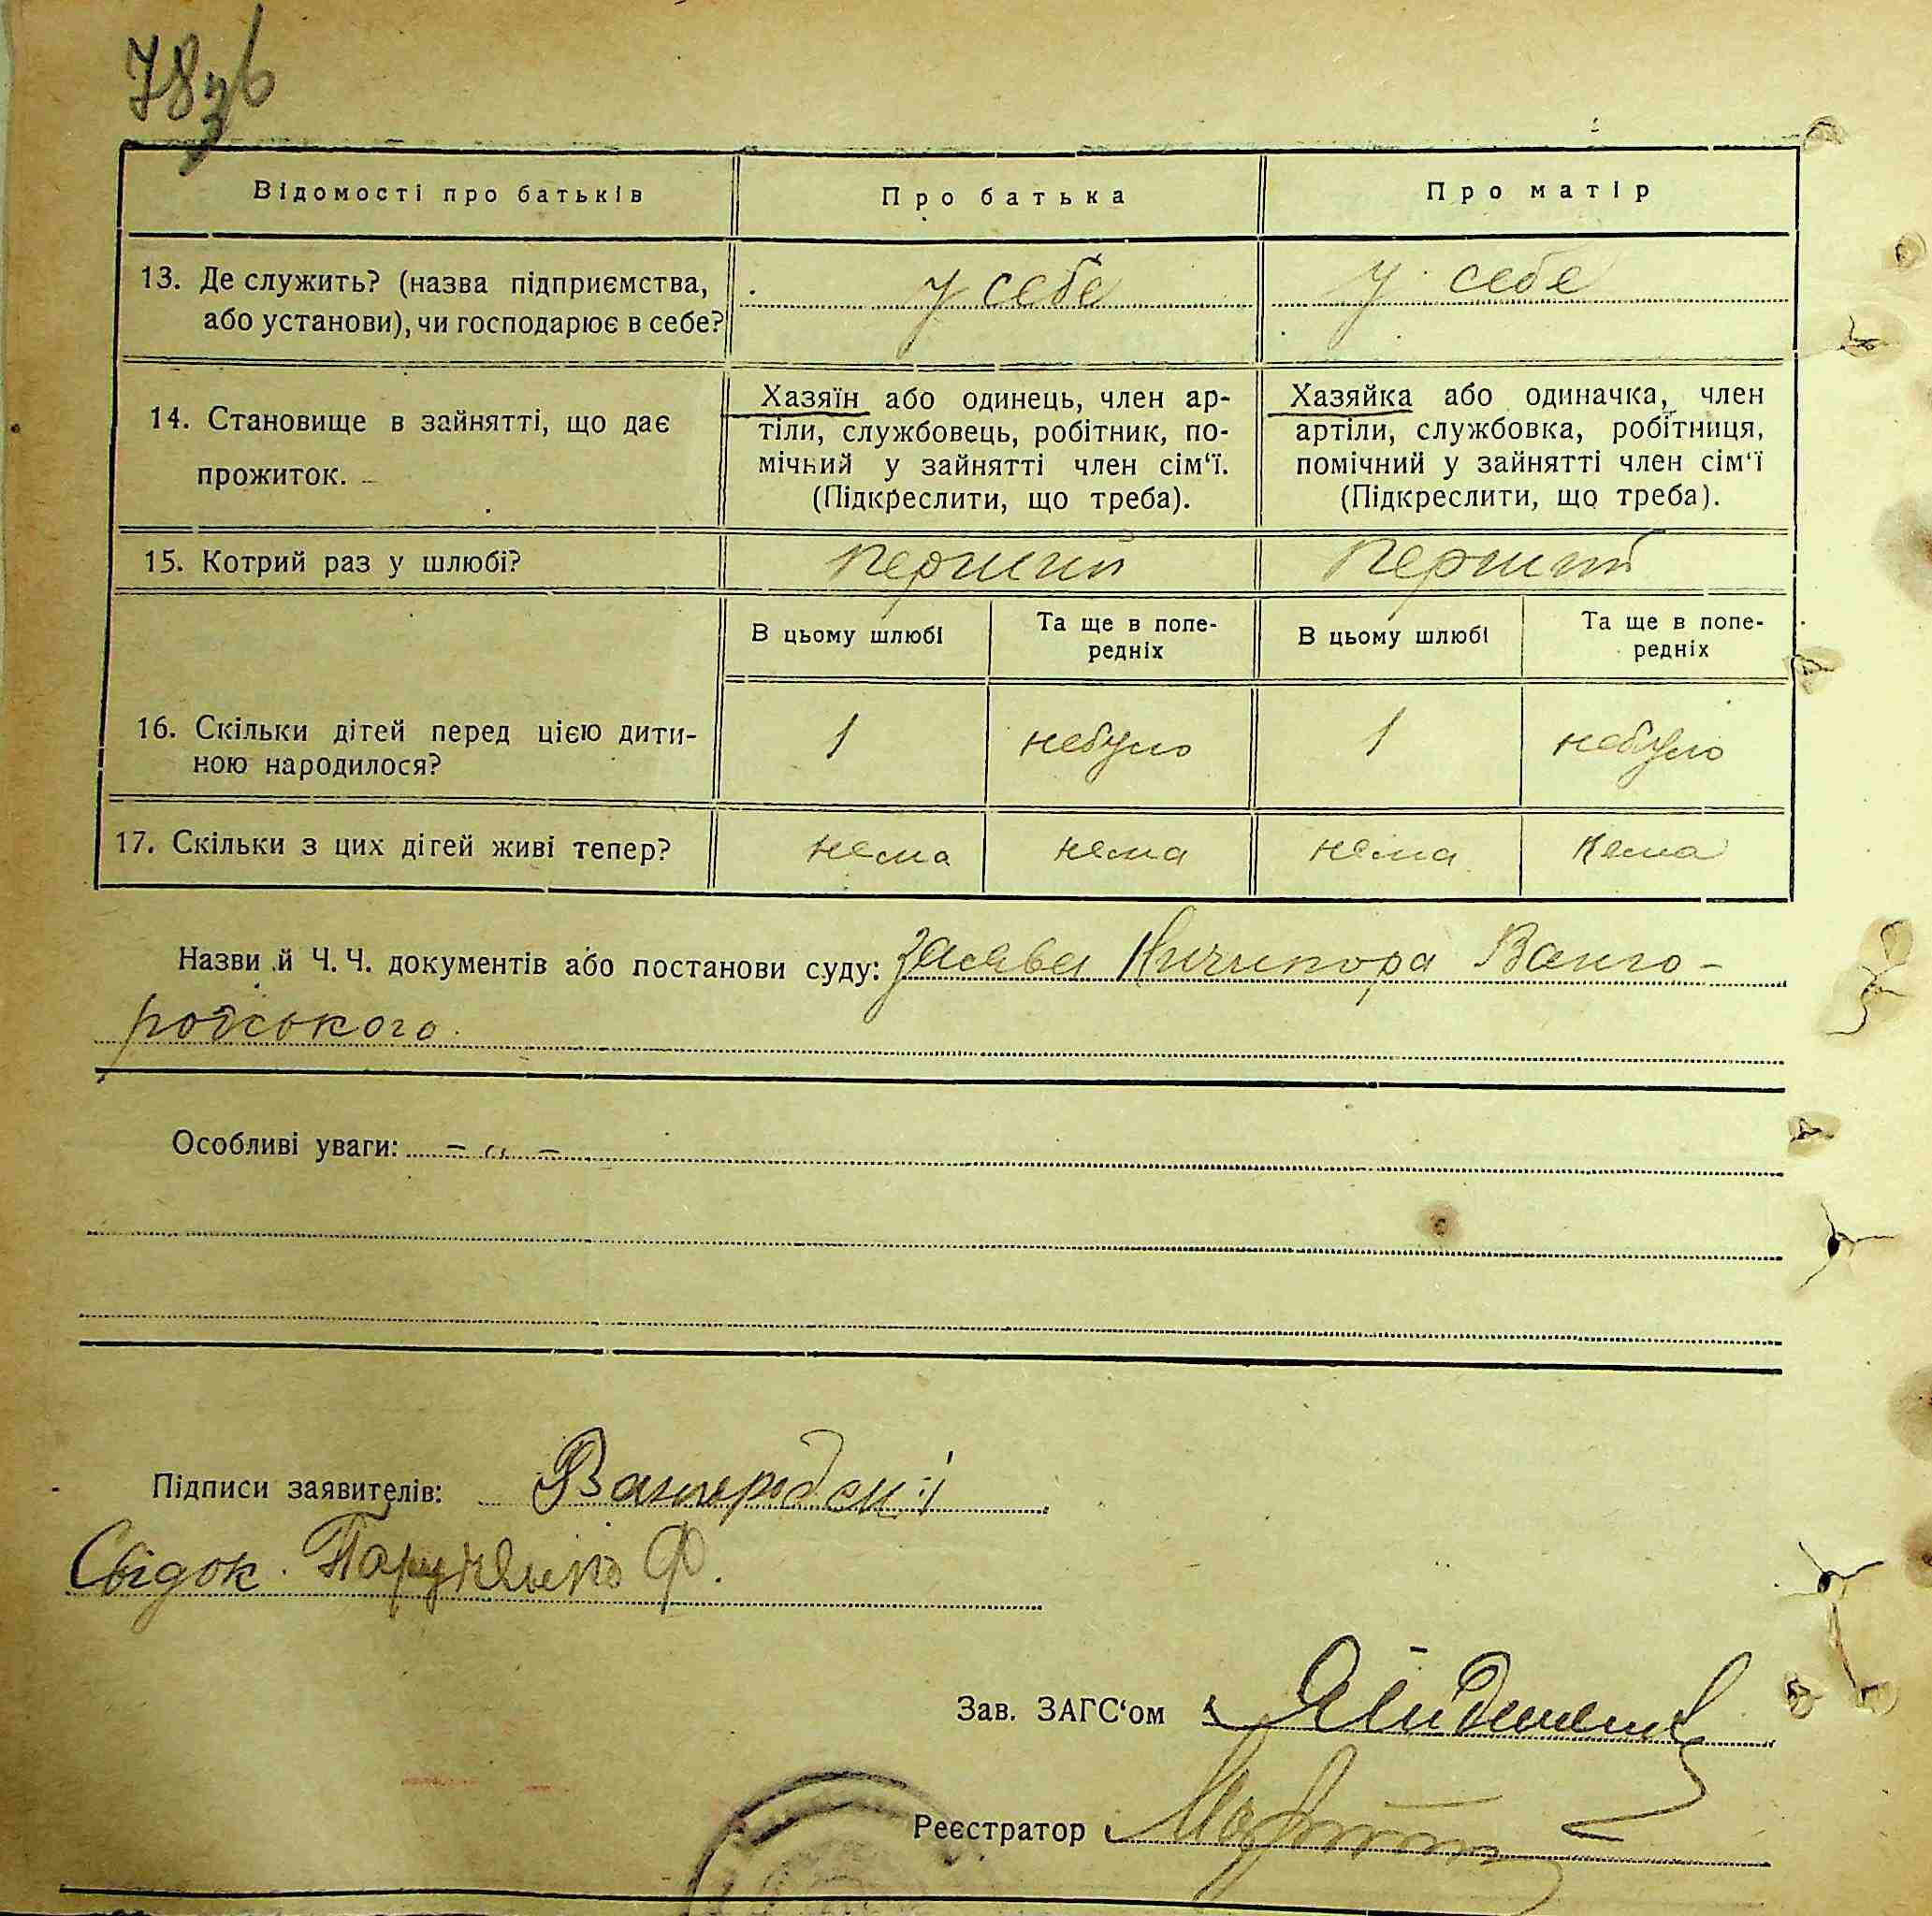 78
Відомості про батьків
Про батька
Про матір
13. Де служить? (назва підприємства,
або установи), чи господарює в себе?
у себе
у себе
14. Становище в зайнятті, що дає
прожиток.
Хазяїн або одинець, член ар-
тіли, службовець, робітник, по-
мічний у зайнятті член сім‘ї.
(Підкреслити, що треба).
Хазяйка або одиначка, член
артіли, службовка, робітниця,
помічний у зайнятті член сім‘ї
(Підкреслити, що треба).
15. Котрий раз у шлюбі?
перший
перший
В цьому шлюбі
Та ще в попе-
редніх
В цьому шлюбі
Та ще в попе-
редніх
16. Скільки дітей перед цією дити-
ною народилося?
1
небуло
1
небуло
17. Скільки з цих дігей живі тепер?
нема
нема
нема
нема
Назви й Ч. Ч. документів або постанови суду: заява Ничипора Ванго-
родського.
Особливі уваги: - „ -
Підписи заявителів:
Свідок Ф.
Зав. ЗАГС‘ом
Реєстратор